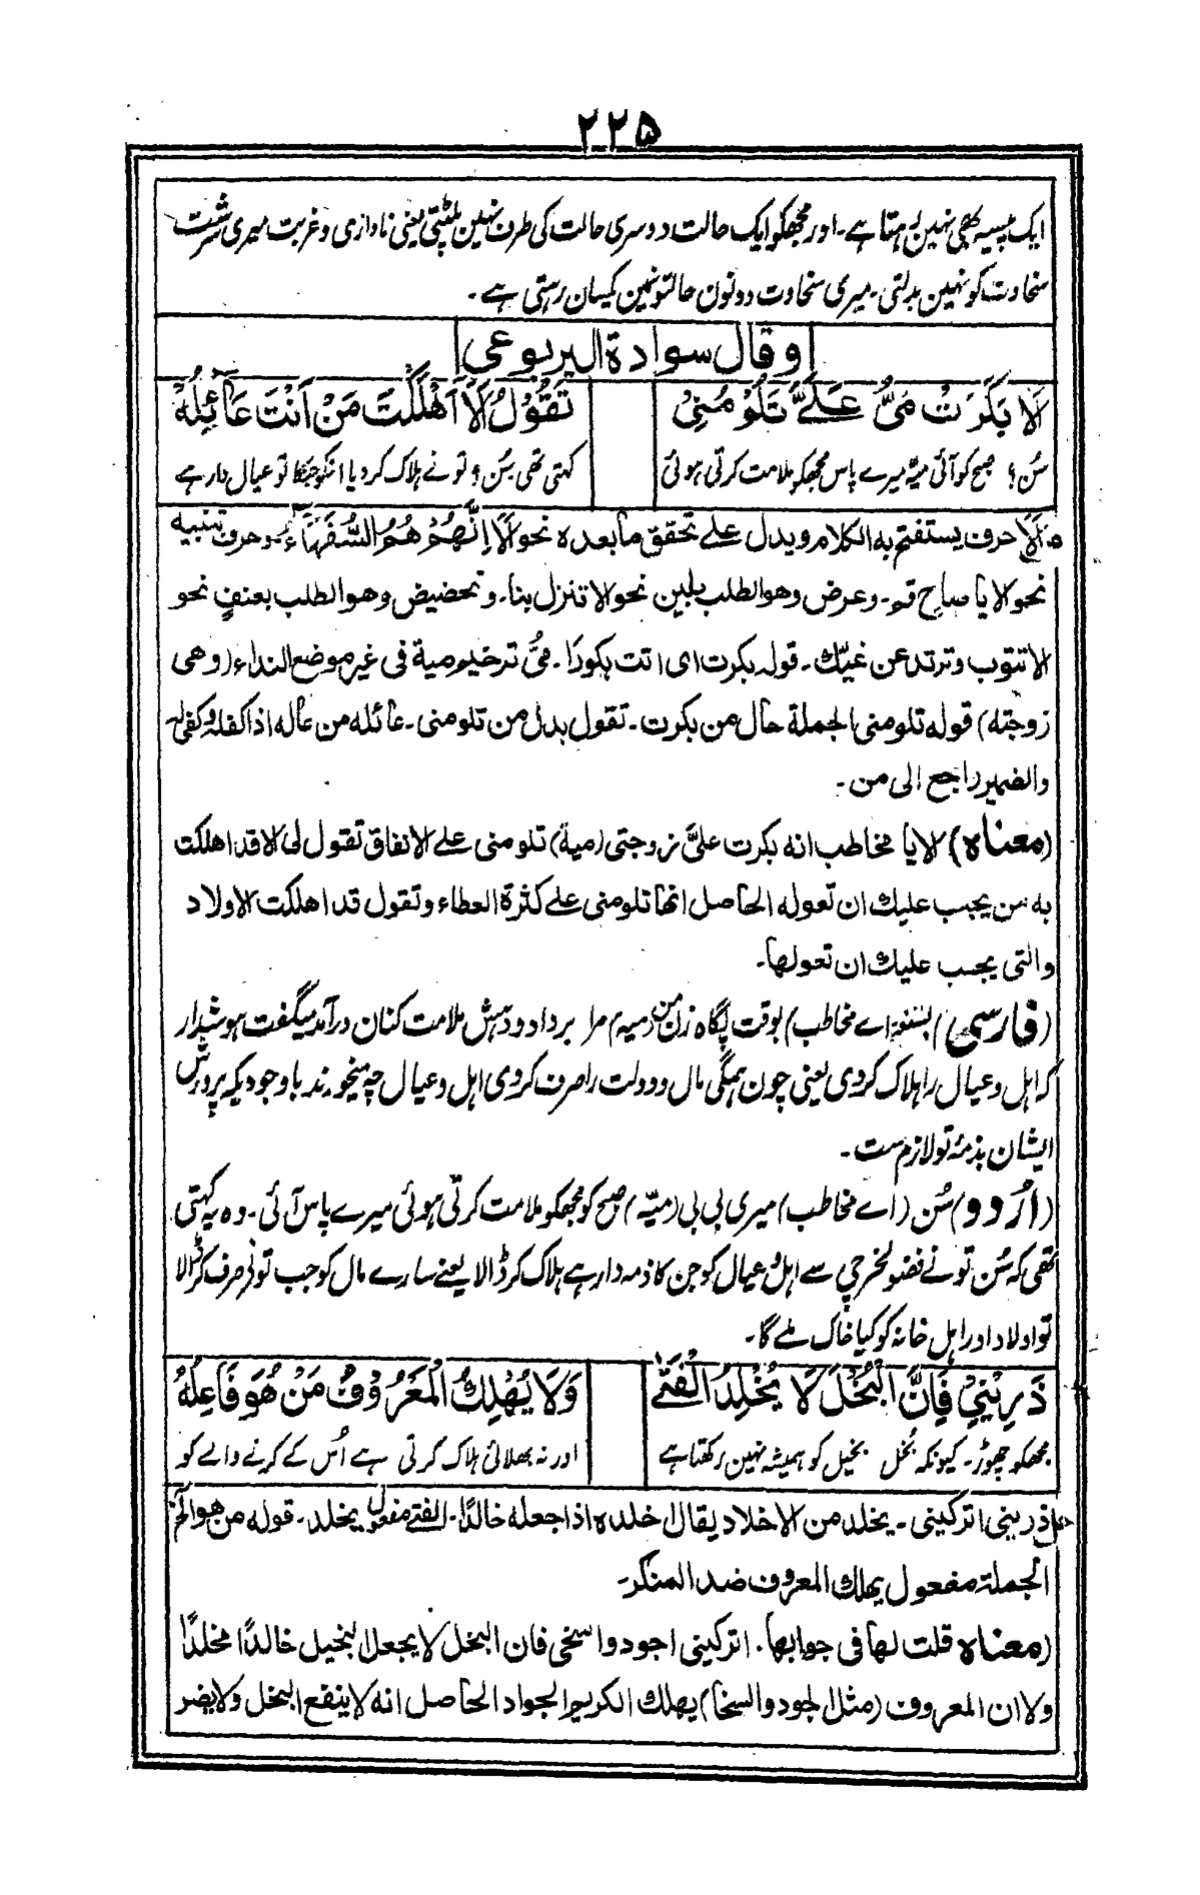 ۲۲۵
ایک پیسہ بھی نہیں رہتا ہے۔ اور مجھکو ایک حالت دوسری حالت کی طرف نہین پلٹتی یعنی ناداری و غربت میری سرشت
سخاوت کو نہین بدلتی۔ میری سخاوت دونون حالتونمین یکسان رہتی ہے۔
وقال سوادة الیربوعی
لَا بَکَرَتْ مَیُّ عَلَیَّ تَلُوْمُنِیْ تَقُوْلُ لَا اَهْلَکْتَ مَنْ اَنْتَ عَائِلُهْ
سُن؟ صبح کو آئی میّہ میرے پاس مجھکو ملامت کرتی ہوئی کہتی تھی سُن؟ تو نے ہلاک کردیا انکو جنکا تو عیال دار ہے
اَلَا حرف یستفتح به الکلام ویدل علے تحقق ما بعده نحو اَلَا اِنَّهُمْ هُمُ السُّفَهَاءُ وحرف تنبیه
نحو لا یا صاحِ قم۔ وعرض وهو الطلب بلین نحو لا تنزل بنا۔ وتحضیض وهو الطلب بعنفٍ نحو
لا تتوب وترتد عن غیّک۔ قوله بکرت ای اتت بکورًا۔ میُّ ترخیم میة فی غیر موضع النداء (وهی
زوجته) قوله تلومنی الجملة حال من بکرت۔ تقول بدل من تلومنی۔ عائله من عاله اذا کفله وکفی له
والضمیر راجع الی من۔
(معناه) لا یا مخاطب انه بکرت علیَّ زوجتی (میة) تلومنی علے الانفاق تقول لی لا قد اهلکت
به من یجب علیک ان تعوله الحاصل انها تلومنی علے کثرة العطاء وتقول قد اهلکت الاولاد
والتی یجب علیک ان تعولها۔
(فارسی) بشنو (اے مخاطب) بوقت پگاہ زن من (میہ) مرا برداد و دہش ملامت کنان درآمد میگفت ہوشدار
کہ اہل و عیال را ہلاک کردی یعنی چون ہمگی مال و دولت را صرف کردی اہل و عیال چہ میخورند باوجودیکہ پرورش
ایشان بذمۂ تو لازم ست۔
(اُردو) سُن (اے مخاطب) میری بی بی (میّہ) صبح کو مجھکو ملامت کرتی ہوئی میرے پاس آئی۔ وہ یہ کہتی
تھی کہ سُن تو نے فضولخرچی سے اہل و عیال کو جن کا ذمہ دار ہے ہلاک کر ڈالا یعنے سارے مال کو جب تو نے صرف کر ڈالا
تو اولاد اور اہل خانہ کو کیا خاک ملے گا۔
ذَرِیْنِیْ فَاِنَّ الْبُخْلَ لَا یُخْلِدُ الْفَتٰے وَلَا یُهْلِکُ الْمَعْرُوْفُ مَنْ هُوَ فَاعِلُهْ
مجھکو چھوڑ۔ کیونکہ بُخل بخیل کو ہمیشہ نہین رکھتا ہے اور نہ بھلائی ہلاک کرتی ہے اُس کے کرنے والے کو
ذرینی اترکینی۔ یخلد من الاخلاد یقال اخلده اذا جعله خالدًا۔ الفتے مفعول یخلد۔ قوله من هو الخ
الجملة مفعول یهلک المعروف ضد المنکر۔
(معناه قلت لها فی جوابها۔ اترکینی اجود واسخی فان البخل لا یجعل البخیل خالدًا مخلدًا
ولا ان المعروف (مثل الجود والسخا) یهلک الکریم الجواد الحاصل انه لا ینفع البخل ولا یضر